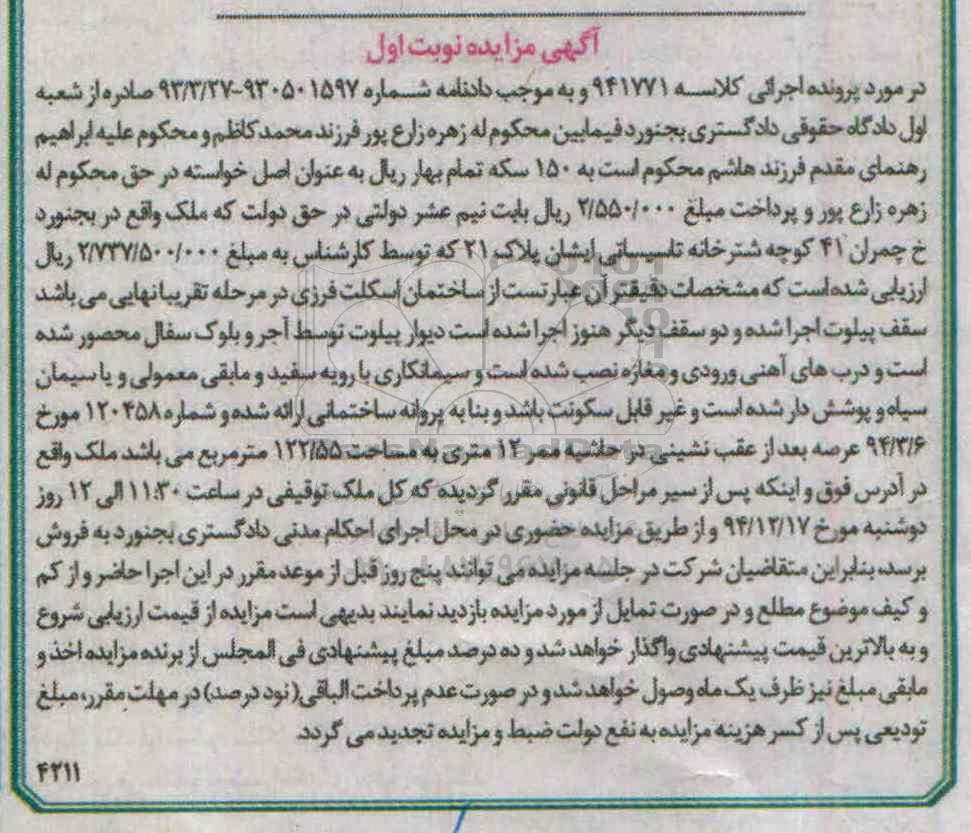 آگهی مزایده نوبت اول
در مورد پرونده اجرائی کلاسه ۹۴۱۷۷۱ و به موجب دادنامه شماره ۹۳۰۵۰۱۵۹۷-۹۳/۳/۲۷ صادره از شعبه
اول دادگاه حقوقی دادگستری بجنورد فیمابین محکوم له زهره زارع پور فرزند محمدکاظم و محکوم علیه ابراهیم
رهنمای مقدم فرزند هاشم محکوم است به ۱۵۰ سکه تمام بهار ریال به عنوان اصل خواسته در حق محکوم له
زهره زارع پور و پرداخت مبلغ ۲/۵۵۰/۰۰۰ ریال بابت نیم عشر دولتی در حق دولت که ملک واقع در بجنورد
خ چمران ۴۱ کوچه شترخانه تاسیساتی ایشان پلاک ۲۱ که توسط کارشناس به مبلغ ۲/۷۳۷/۵۰۰/۰۰۰ ریال
ارزیابی شده است که مشخصات دقیقتر آن عبارتست از ساختمان اسکلت فرزی در مرحله تقریبا نهایی می باشد
سقف پیلوت اجرا شده و دو سقف دیگر هنوز اجرا شده است دیوار پیلوت توسط آجر و بلوک سفال محصور شده
است و درب های آهنی ورودی و مغازه نصب شده است و سیمانکاری با رویه سفید و مابقی معمولی و یا سیمان
سیاه و پوشش دار شده است و غیر قابل سکونت باشد و بنا به پروانه ساختمانی ارائه شده و شماره ۱۲۰۴۵۸ مورخ
۹۴/۳/۶ عرصه بعد از عقب نشینی در حاشیه ممر ۱۲ متری به مساحت ۱۲۲/۵۵ مترمربع می باشد ملک واقع
در آدرس فوق و اینکه پس از سیر مراحل قانونی مقرر گردیده که کل ملک توقیفی در ساعت ۱۱:۳۰ الی ۱۲ روز
دوشنبه مورخ ۹۴/۱۲/۱۷ و از طریق مزایده حضوری در محل اجرای احکام مدنی دادگستری بجنورد به فروش
برسد، بنابراین متقاضیان شرکت در جلسه مزایده می توانند پنج روز قبل از موعد مقرر در این اجرا حاضر و از کم
و کیف موضوع مطلع و در صورت تمایل از مورد مزایده بازدید نمایند بدیهی است مزایده از قیمت ارزیابی شروع
و به بالاترین قیمت پیشنهادی واگذار خواهد شد و ده درصد مبلغ پیشنهادی فی المجلس از برنده مزایده اخذ و
مابقی مبلغ نیز ظرف یک ماه وصول خواهد شد و در صورت عدم پرداخت الباقی (نود درصد) در مهلت مقرر، مبلغ
تودیعی پس از کسر هزینه مزایده به نفع دولت ضبط و مزایده تجدید می گردد.
۴۲۱۱